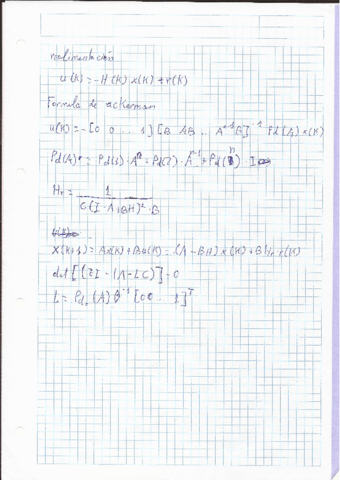 realimentación
u(K) = -H(K) x(K) + r(K)
Formula de ackerman
u(K) = -[0 0 ... 1] [B AB ... A^(n-1)B]^-1 Pd(A) x(K)
Pd(A) = Pd(1)·A^n + Pd(2)·A^(n-1) + Pd(n)·I
Hr = 1 / C(I-A+BH)^-1·B
x(K+1) = Ax(K) + Bu(K) = (A-BH) x(K) + B Hr·r(K)
det[(zI - (A-LC)] = 0
L = Pdo(A) θ^-1 [0 0 ... 1]^T